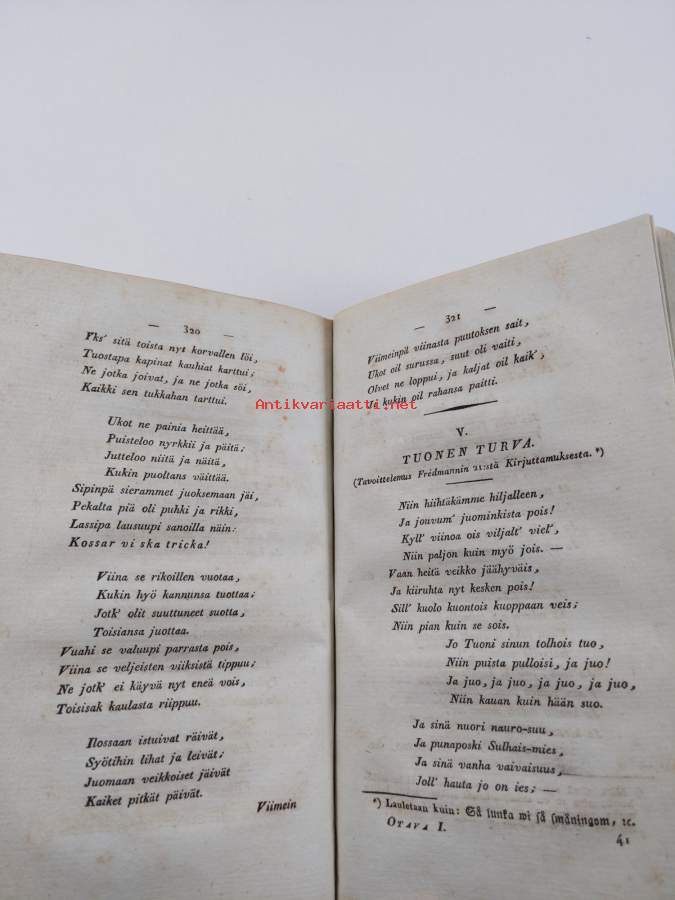 — 320 —
Yks' sitä toista nyt korvallen löi,
Tuostapa kapinat kauhiat karttui;
Ne jotka joivat, ja ne jotka söi,
Kaikki sen tukkahan tarttui.
Ukot ne painia heittää,
Puisteloo nyrkkii ja päitä;
Jutteloo niitä ja näitä,
Kukin puoltans väittää.
Sipinpä sierammet juoksemaan jäi,
Pekalta piä oli puhki ja rikki,
Lassipa lausuupi sanoilla näin:
Kossar vi ska tricka!
Viina se rikoillen vuotaa,
Kukin hyö kannunsa tuottaa;
Jotk' olit suuttuneet suotta,
Toisiansa juottaa.
Vuahi se valuupi parrasta pois,
Viina se veljeisten viiksistä tippuu;
Ne jotk' ei käyvä nyt eneä vois,
Toisisak kaulasta riippuu.
Ilossaan istuivat räivät,
Syötihin lihat ja leivät;
Juomaan veikkoiset jäivät
Kaiket pitkät päivät.
Viimein
— 321 —
Viimeinpä viinasta puutoksen sait,
Ukot oil surussa, suut oli vaiti,
Olvet ne loppui, ja kaljat oil kaik',
Ja kukin oil rahansa paitti.
Antikvariaatti.net
V.
TUONEN TURVA.
(Tavoittelemus Fredmannin 21:stä Kirjuttamuksesta. *)
Niin hiihtäkämme hiljalleen,
Ja jouvum' juominkista pois!
Kyll' viinoa ois viljalt' viel',
Niin paljon kuin myö jois. —
Vaan heitä veikko jäähyväis,
Ja kiiruhta nyt kesken pois!
Sill' kuolo kuontois kuoppaan veis;
Niin pian kuin se sois.
Jo Tuoni sinun tolhois tuo,
Niin puista pulloisi, ja juo!
Ja juo, ja juo, ja juo, ja juo,
Niin kauan kuin hään suo.
Ja sinä nuori nauro-suu,
Ja punaposki Sulhais-mies,
Ja sinä vanha vaivaisuus,
Joll' hauta jo on ies; —
*) Lauletaan kuin: Så lunka wi så småningom, ꝛc.
OTAVA I.
41